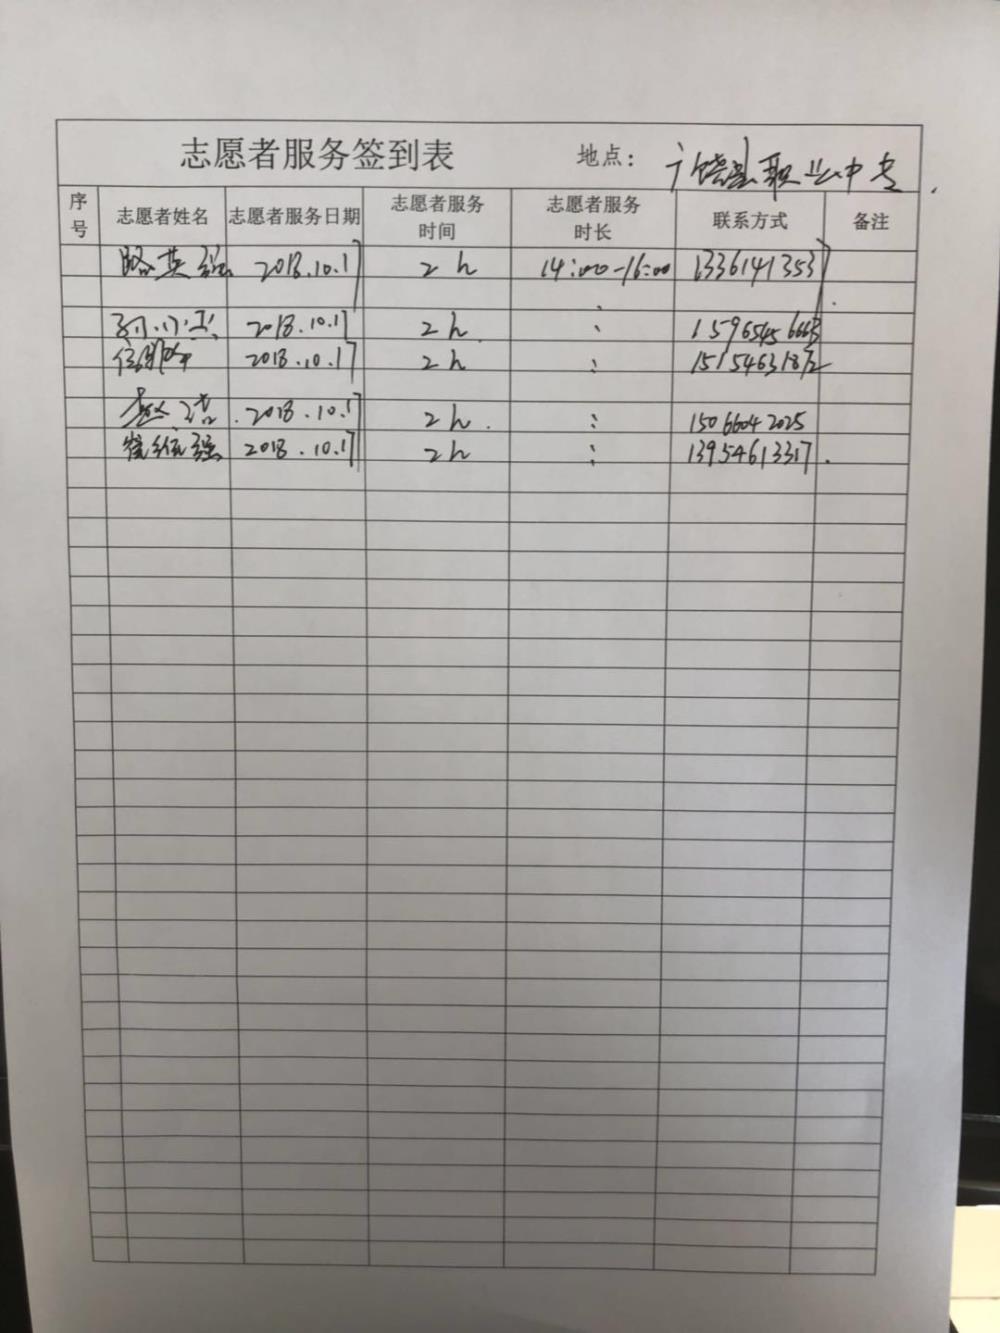 志愿者服务签到表 地点：广饶县职业中专
序号 志愿者姓名 志愿者服务日期 志愿者服务时间 志愿者服务时长 联系方式 备注
2018.10.17 2h 14:00-16:00 13361413537
2018.10.17 2h : 15965456663
2018.10.17 2h : 15154631872
赵洁 2018.10.17 2h : 15066042025
2018.10.17 2h : 13954613317